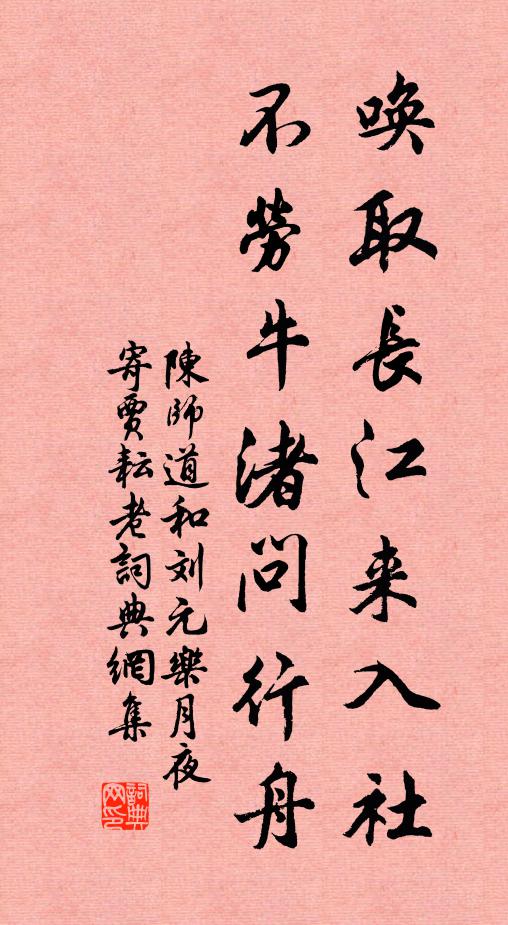 唤取長江来入社
不勞牛渚問行舟
陳師道和刘元樂月夜
寄賈耘老詞典網集
詞典网印